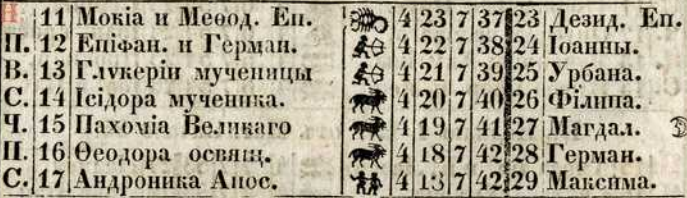 Н. 11 Мокіа и Меѳод. Еп. 4 23 7 37 23 Дезид. Еп.
П. 12 Епіфан. и Герман. 4 22 7 38 24 Іоанны.
В. 13 Глѵкеріи мученицы 4 21 7 39 25 Урбана.
С. 14 Ісідора мученика. 4 20 7 40 26 Філипа.
Ч. 15 Пахоміа Великаго 4 19 7 41 27 Магдал.
П. 16 Ѳеодора освящ. 4 18 7 42 28 Герман.
С. 17 Андроника Апос. 4 18 7 42 29 Максима.